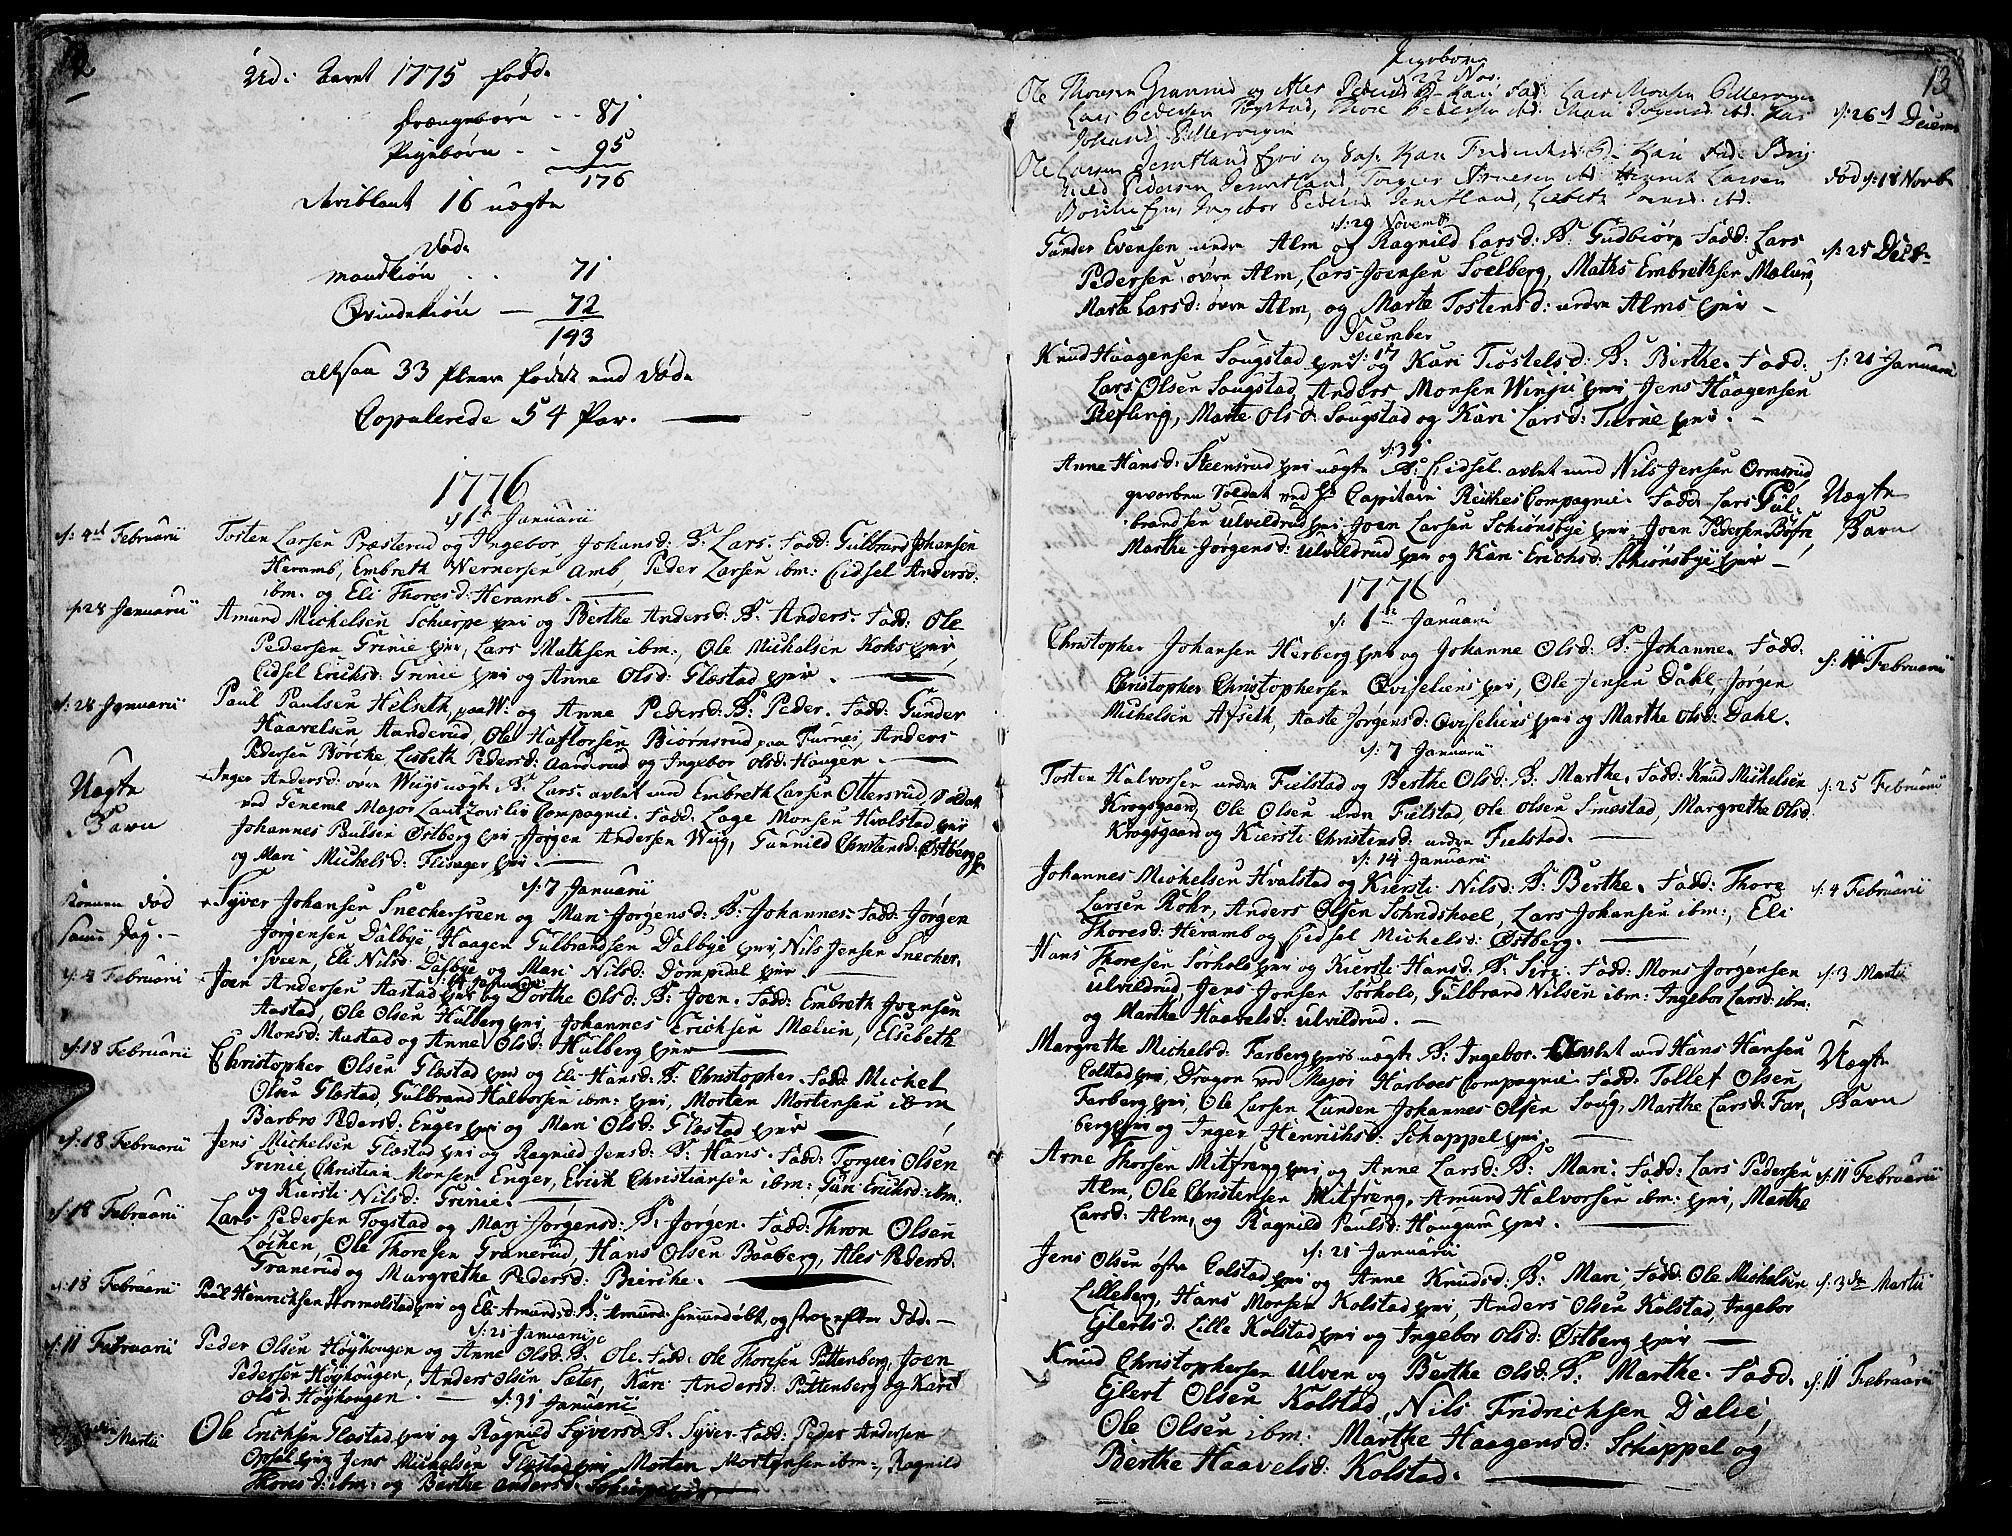 12
Udi Aaret 1775 fød.
Drængebørn - - 81
Pigebørn - - 95
176
Deriblant 16 uægte
Døde
Mandkiøn - - 71
Qvindekiøn — 72
143
altsaa 33 fleere født end Død.
Copulerede 54 Par.
1776
d: 1 Januarii
d: 4de Februarii
Tosten Larsen Præsterud og Ingebor Johansd: B: Lars. Fadd: Gulbrand Johansen
Heramb, Embreth Wernersen Amb, Peder Larsen ibm: Eidsel Andersd:
ibm. og Eli Thoresd: Heramb.
d: 28 Januarii
Amund Michelsen Schierpe eyer og Berthe Andersd: B: Anders. Fadd: Ole
Pedersen Grinie eyer, Lars Mathsen ibm:, Ole Michelsen Koks eyer,
Eidsel Eriksd: Grinie eyer og Anne Olsd: Glæstad eyer.
d: 28 Januarii
Paul Paulsen Helseth, paa W: og Anne Pedersd: B: Peder. Fadd: Gunder
Haavelsen Aanderud, Ole Haflorsen Biørnsrud paa Furnes, Anders
Pedersen Børcke, Lisbeth Pedersd: Aanderud og Ingebor Olsd: Haugen.
Uægte
Barn
Inger Andersd: øvre Wiigs uægte B: Lars. avlet med Embreth Larsen Ottersrud, Soldat
ved General Major Lautzovslis Compagnie. Fadd: Lage Monsen Hvalstad eyer
Johannes Paulsen Østberg eyer Jørgen Andersen Wiig, Gunnild Christensd: Østberg
og Mari Michelsd: Flisager eyer.
d: 7 Januarii
død
samme Dag. —
Syver Johansen Sneckersveen og Mari Jørgensd: B: Johannes. Fadd: Jørgen
Jørgensen Dalbye, Haagen Gulbrandsen Dalbye eyer, Nils Jensen Snecker,
sveen, Eli Nilsd: Dalbye og Mari Nilsd: Dompidal eyer.
d: 14 Januarii
d: 4 Februarii
Joen Andersen Aastad eyer og Dorthe Olsd: B: Joen. Fadd: Embreth Joensen
Aastad, Ole Olsen Hulberg eyer Johannes Erichsen Mælum, Elsebeth
Monsd: Aastad og Anne Olsd: Hulberg eyer
d: 18 Februarii
Christopher Olsen Glæstad eyer og Eli Hansd: B: Christopher. Fadd: Michel
Olsen Glæstad, Gulbrand Halvorsen ibm: eyer, Morten Mortensen ibm
Barbro Pedersd: Enger eyer og Mari Olsd: Glæstad eyer
d: 18 Februarii
Jens Michelsen Glæstad eyer og Ragnild Jensd: B: Hans. Fadd: Torgier Olsen
Grinie, Christian Monsen Enger, Erich Christiansen ibm: Guri Eriksd: ibm:
og Kiersti Nilsd: Grinie.
d: 18 Februarii
Lars Pedersen Togstad og Mari Jørgensd: B: Jørgen. Fadd: Thron Olsen
Løchen, Ole Thoresen Granerud, Hans Olsen Baaberg, Ales Pedersd:
Granerud og Margrethe Pedersd: Bierche.
d: 18 Februarii
Paal Henrichsen Hormolstad eyer og Eli Amundsd: B: Amund. hiemmedøbt, og strax efter død.—
d: 21 Januarii
d: 11 Februarii
Peder Olsen Høyhougen og Anne Olsd: B: Ole. Fadd: Ole Thoresen Puttenberg, Joen
Pedersen Høyhougen, Anders Olsen Sæter, Kari Andersd: Puttenberg og Kari
Olsd: Høyhougen. —
d: 31 Januarii
Martii
Ole Erichsen Glæstad eyer og Ragnild Syversd: B: Syver. Fadd: Peder Andersen
Opsal eyer Jens Michelsen Glæstad eyer Morten Mortensen ibm:, Ragnild
Thoresd: ibm: og Berthe Andersd: Schierpe eyer
13
22 Nov.
Ole Thoresen Granerud og Ales Pedersd: B: Kari Fadd: Lars Monsen
Lars Pedersen Togstad, Thore Pedersen ibd: Mari Jørgensd: ibd:
Johansd:
d: 26d Decemb
Ole Larsen Jemtland eyer og Kari Fredriksd: B: Kari Fadd:
Pedersen Jemtland, Torgier Arnesen ibd: Henrich Larsen
Ingebor Pedersd: Jemtland, Lisbeth ibd:
død d: 18 Novb
d: 29 Novemb
Gunder Evensen nedre Alm og Ragnild Larsd: B: Gudbiør. Fadd: Lars
Pedersen øvre Alm, Lars Joensen Soelberg, Maths Embrethsen Mælum,
Marte Larsd: øvre Alm, og Marte Tostensd: nedre Alms eyer —
d: 25 Decb.
December
d: 17
Knud Haagensen Sougstad eyer og Kari Tiostelsd: B: Berthe. Fadd:
Lars Olsen Sougstad, Anders Monsen Winju eyer, Jens Haagensen
Refling, Marte Olsd: Sougstad og Kari Larsd: Tierne eyer. —
d: 21 Januarii
d: 31
Anne Hansd: Steensrud eyer uægte B: Eidsel. avlet med Nils Jensen Ormsrud
geworben Soldat ved H: Capitain Reiches Compagnie. Fadd: Lars Gul-
brandsen Ulvildrud eyer Joen Larsen Schiønsbye eyer, Joen Pedersen Bøfre,
Marthe Jørgensd: Ulvildrud eyer og Kari Erichsd: Schiønsbye eyer —
Uægte
Barn
1776
d: 1ste Januarii
Christopher Johansen Herberg eyer og Johanne Olsd: B: Johanne. Fadd:
Christopher Christophersen Qviseliens eyer, Ole Jensen Dahl, Jørgen
Michelsen Afseth, Aaste Jørgensd: Qviseliens eyer og Marthe Olsd: Dahl.
d: 11 Februarii
d: 7 Januarii
Tosten Halvorsen nedre Fielstad og Berthe Olsd: B: Marthe. Fadd: Knud Michelsen
Krogsgaard, Ole Olsen nedre Fielstad, Ole Olsen Smestad, Margrethe Olsd:
Krogsgaard og Kiersti Christensd: nedre Fielstad.
d: 25 Februarii
d: 14 Januarii
Johannes Michelsen Hvalstad og Kiersti Nilsd: B: Berthe. Fadd: Thore
Larsen Røhr, Anders Olsen Schridshoel, Lars Johansen ibm:, Eli
Thoresd: Heramb og Eidsel Michelsd: Østberg.
d: 4 Februarii
Hans Thoresen Sørholo eyer og Kiersti Hansd: B: Siri. Fadd: Mons Jørgensen
Ulvildrud, Jens Jonsen Sørholo, Gulbrand Nilsen ibm: Ingebor Larsd: ibm:
og Marthe Haavelsd: Ulvildrud. —
d: 3 Martii
Margrethe Michelsd: Farberg eyer uægte B: Ingebor. avlet med Hans Hansen
Colstad eyer, Dragon ved Major Harboes Compagnie. Fadd: Tollef Olsen
Farberg eyer, Ole Larsen Lunden Johannes Olsen Soug, Marthe Larsd: Far,
berg eyer og Inger Henriksd: Schappel eyer.
Uægte
Barn
Arne Thorsen Mitfreng eyer og Anne Larsd: B: Mari. Fadd: Lars Pedersen
Alm, Ole Christensen Mitfreng, Amund Halvorsen ibm: eyer, Marthe
Larsd: Alm, og Ragnild Paulsd: Hougum eyer.
d: 11 Februarii
d: 21 Januarii
Jens Olsen øfre Colstad eyer og Anne Knudsd: B: Mari Fadd: Ole Michelsen
Lilleberg, Hans Monsen Kolstad eyer, Anders Olsen Kolstad, Ingebor
Ejlertsd: Lille Kolstad eyer og Ingebor Olsd: Østberg eyer —
d: 3de Martii
Knud Christophersen Ulven og Berthe Olsd: B: Marthe. Fadd.
Ejlert Olsen Kolstad, Nils Fridrichsen Dælie,
Ole Olsen ibm: Marthe Haagensd: Schappel og
Berthe Haavelsd: Kolstad.
d: 11 Februarii